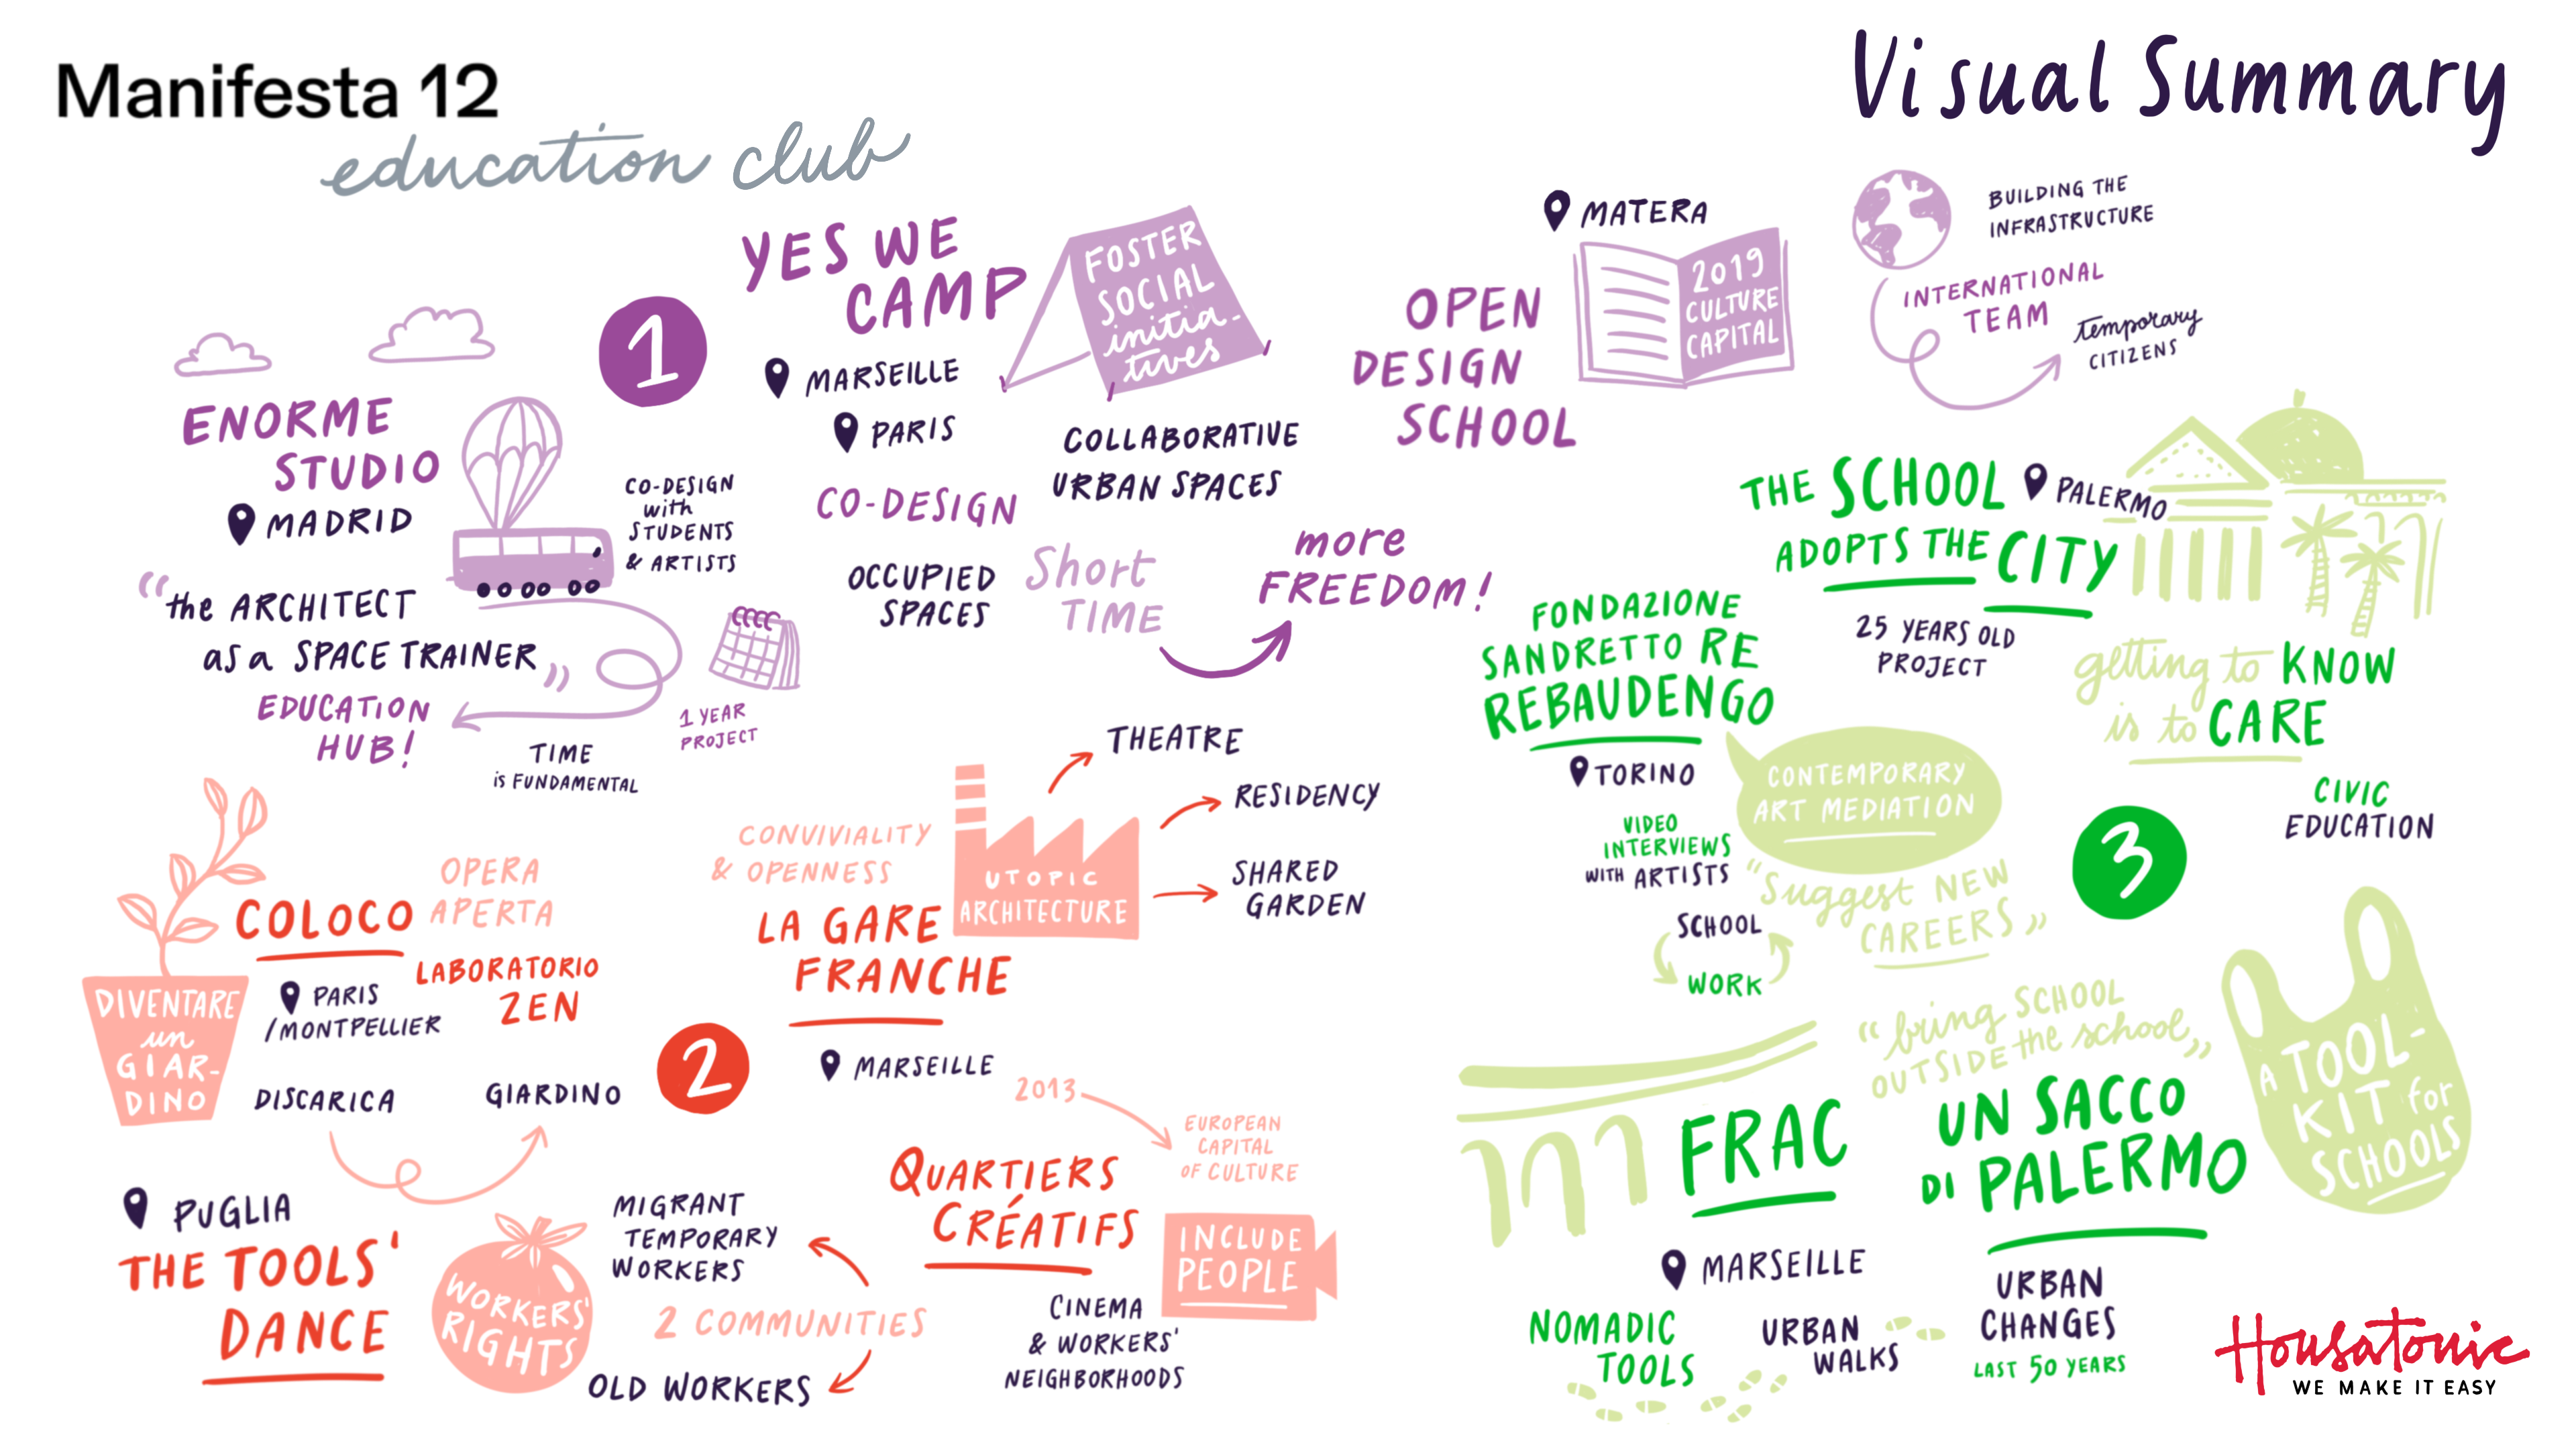 Manifesta 12
education club
Visual Summary
1
ENORME
STUDIO
MADRID
"the ARCHITECT
as a SPACE TRAINER"
EDUCATION
HUB!
CO-DESIGN
with
STUDENTS
& ARTISTS
1 YEAR
PROJECT
TIME
is FUNDAMENTAL
YES WE
CAMP
MARSEILLE
PARIS
FOSTER
SOCIAL
initia-
tives
COLLABORATIVE
URBAN SPACES
CO-DESIGN
OCCUPIED
SPACES
Short
TIME
more
FREEDOM!
OPEN
DESIGN
SCHOOL
MATERA
2019
CULTURE
CAPITAL
BUILDING THE
INFRASTRUCTURE
INTERNATIONAL
TEAM
temporary
CITIZENS
2
COLOCO
OPERA
APERTA
LABORATORIO
ZEN
PARIS
/MONTPELLIER
DIVENTARE
un
GIAR-
DINO
DISCARICA
GIARDINO
CONVIVIALITY
& OPENNESS
LA GARE
FRANCHE
MARSEILLE
UTOPIC
ARCHITECTURE
THEATRE
RESIDENCY
SHARED
GARDEN
PUGLIA
THE TOOLS'
DANCE
WORKERS'
RIGHTS
MIGRANT
TEMPORARY
WORKERS
2 COMMUNITIES
OLD WORKERS
2013
EUROPEAN
CAPITAL
OF CULTURE
QUARTIERS
CRÉATIFS
INCLUDE
PEOPLE
CINEMA
& WORKERS'
NEIGHBORHOODS
3
THE SCHOOL
ADOPTS THE CITY
PALERMO
25 YEARS OLD
PROJECT
getting to KNOW
is to CARE
CIVIC
EDUCATION
FONDAZIONE
SANDRETTO RE
REBAUDENGO
TORINO
CONTEMPORARY
ART MEDIATION
VIDEO
INTERVIEWS
WITH ARTISTS
"Suggest NEW
CAREERS"
SCHOOL
WORK
FRAC
MARSEILLE
NOMADIC
TOOLS
URBAN
WALKS
"bring SCHOOL
OUTSIDE the school"
UN SACCO
DI PALERMO
A TOOL-
KIT for
SCHOOLS
URBAN
CHANGES
LAST 50 YEARS
Housatonic
WE MAKE IT EASY